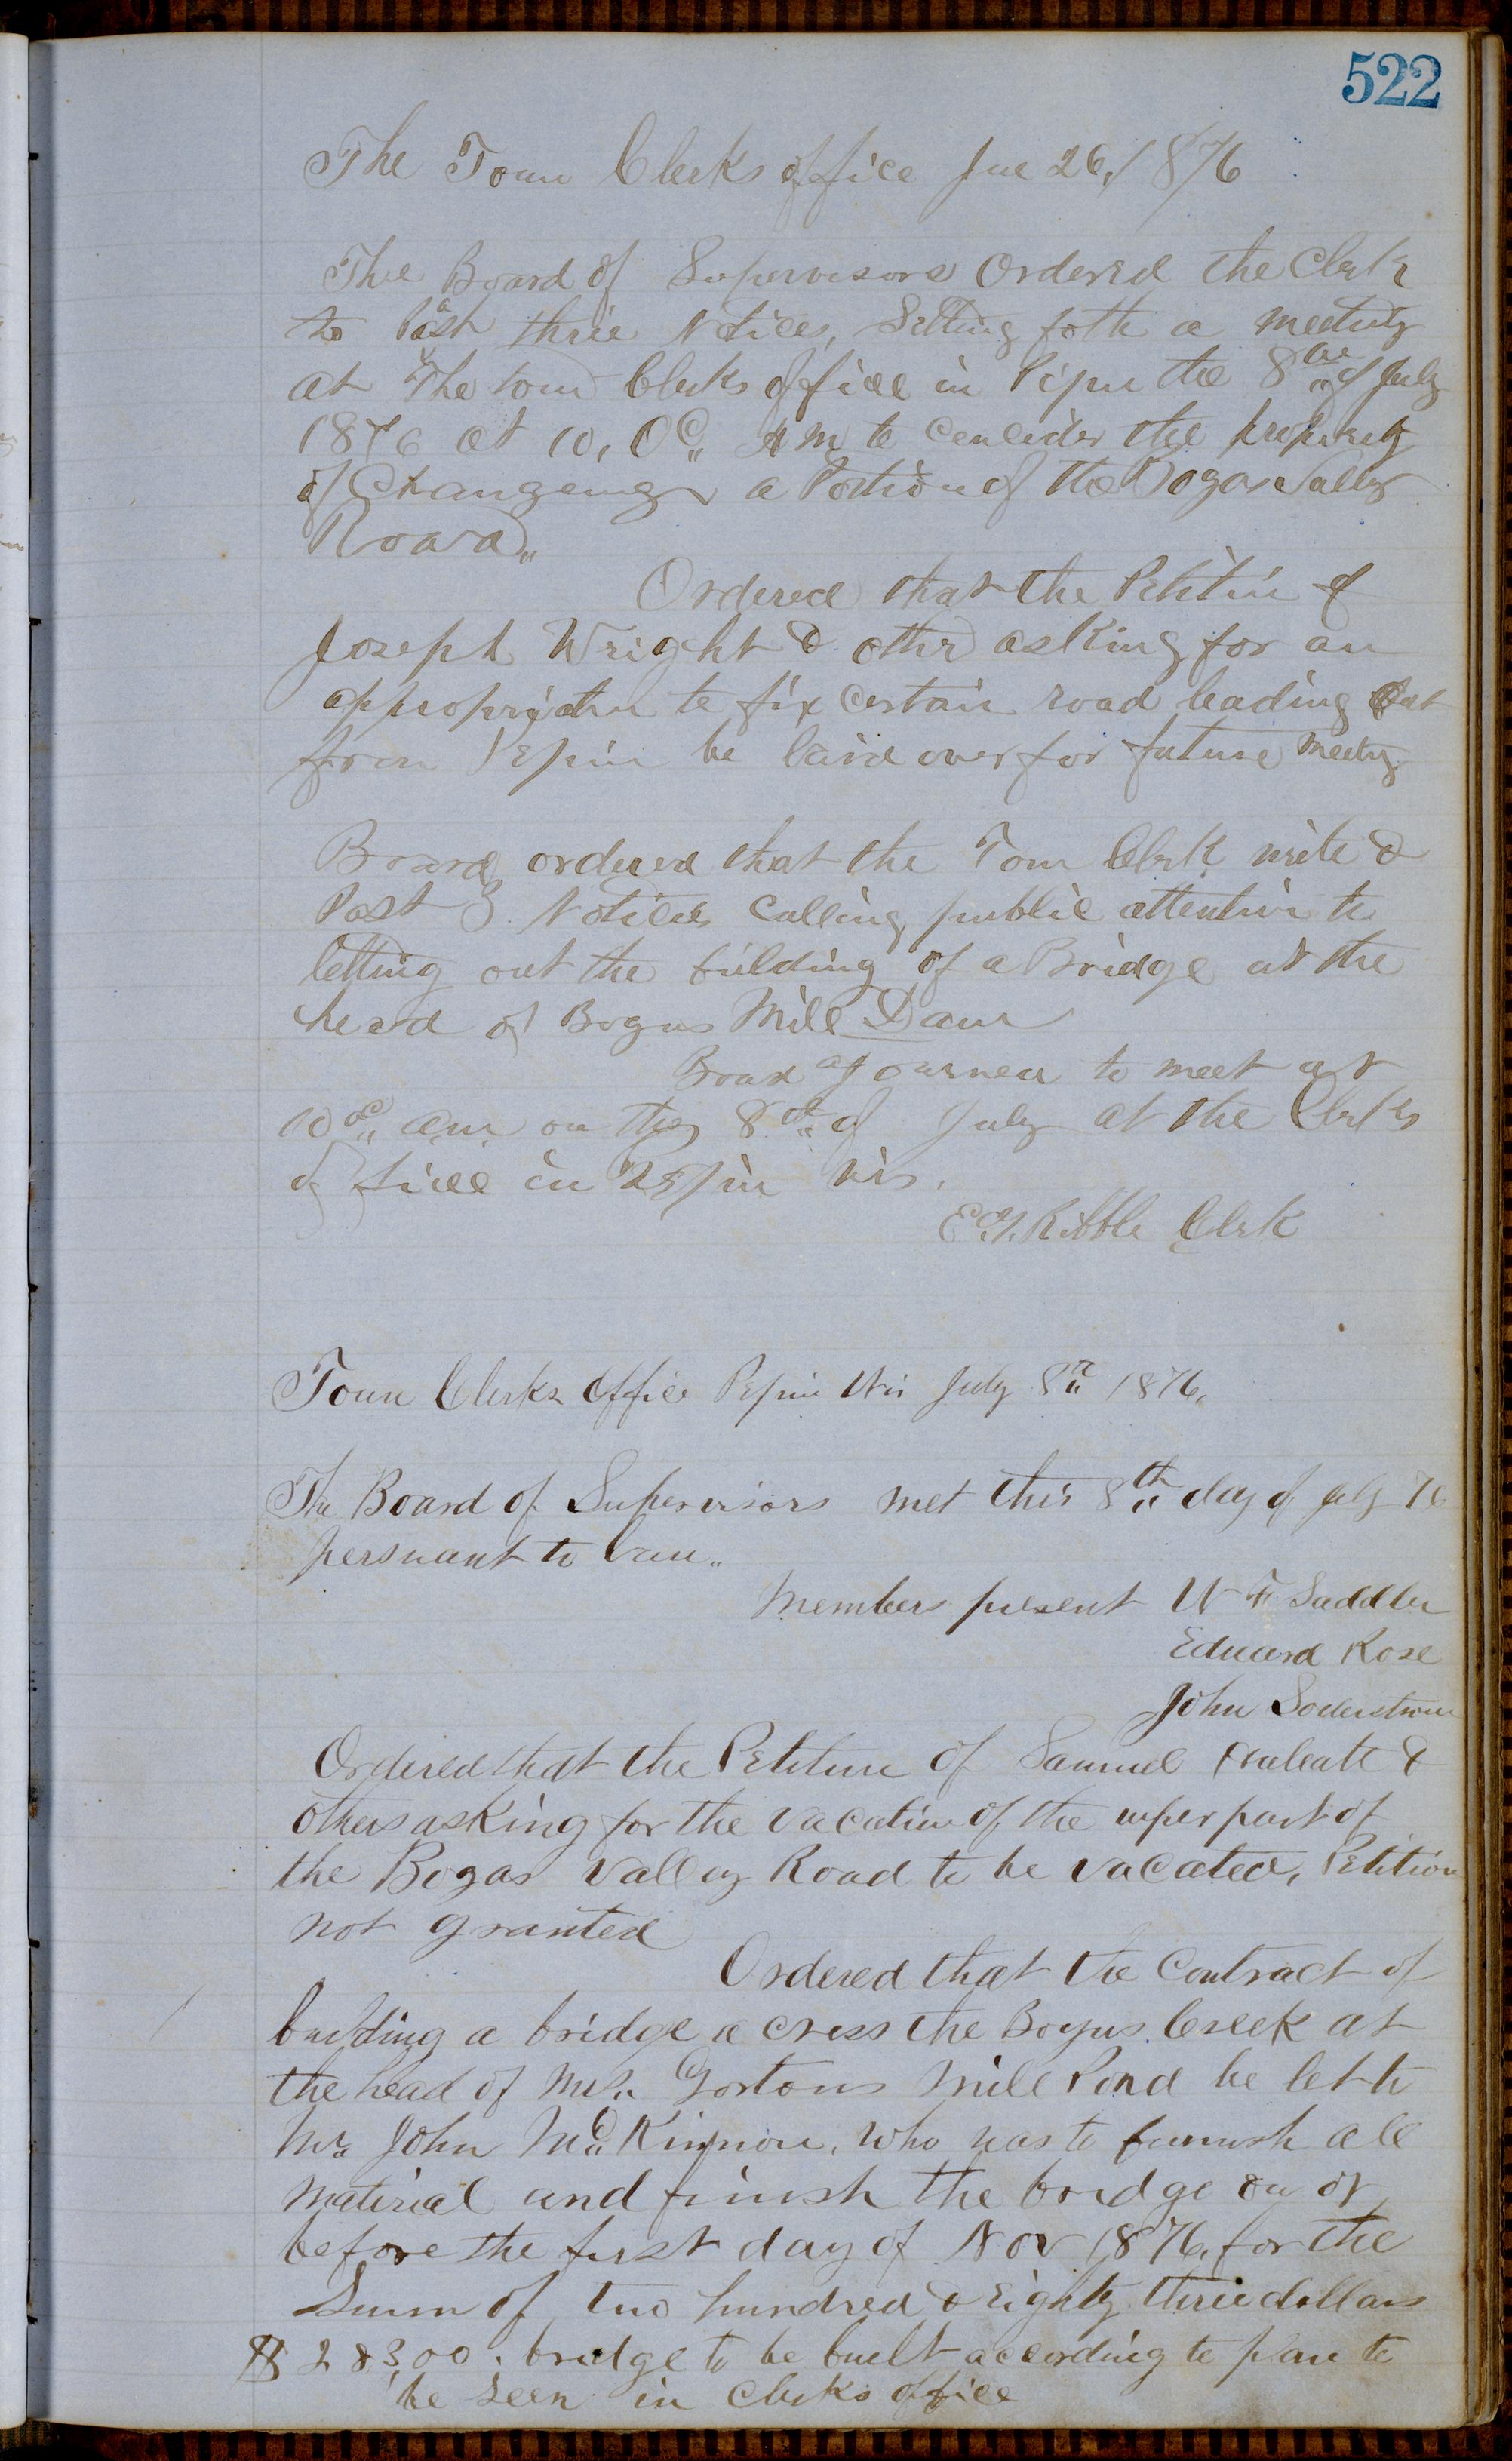 522
The Town Clerks office Jue 26, 1876
The Board of Supervisors Ordered the Clerk
to Post three Notices, Setting foth a meeting
at The town Clerks office in Pepin the 8th of July
1876 at 10, Oc,, AM to concider the propriety
of Changeing a Portion of the Bogas Valley
Road,,
Ordered that the Petition of
Joseph Wright & other asking for an
appropriation to fix certain road leading out
from Pepin be laid over for future meeting
Board ordered that the Town Clerk write &
Post 3 Notices calling public attention to
letting out the building of a Bridge at the
head of Bogus Mill Dam
Board ajourned to meet at
10 oc,, am on the 8th of July at the Clerks
office in Pepin Wis.
E. G. Ribble Clerk
Town Clerks office Pepin Wis July 8th 1876,,
The Board of Supervisors met this 8th day of July 76
persuant to Law,,
Members present W F Saddler
Edward Rose
John Soderstrom
Ordered that the Petition of Samuel &
others asking for the vacation of the uper part of
the Bogas Valley Road to be vacated, Petition
not granted
Ordered that the Contract of
building a bridge across the Bogus Creek at
the head of Mrs,, Gortons Mill Pond be let to
Mr John McKinnon, who was to furnish all
material and finish the bridge on or
before the first day of Nov 1876, for the
Sum of two hundred & Eighty three dollars
$ 283,00. bridge to be built according to plan to
be seen in Clerks office